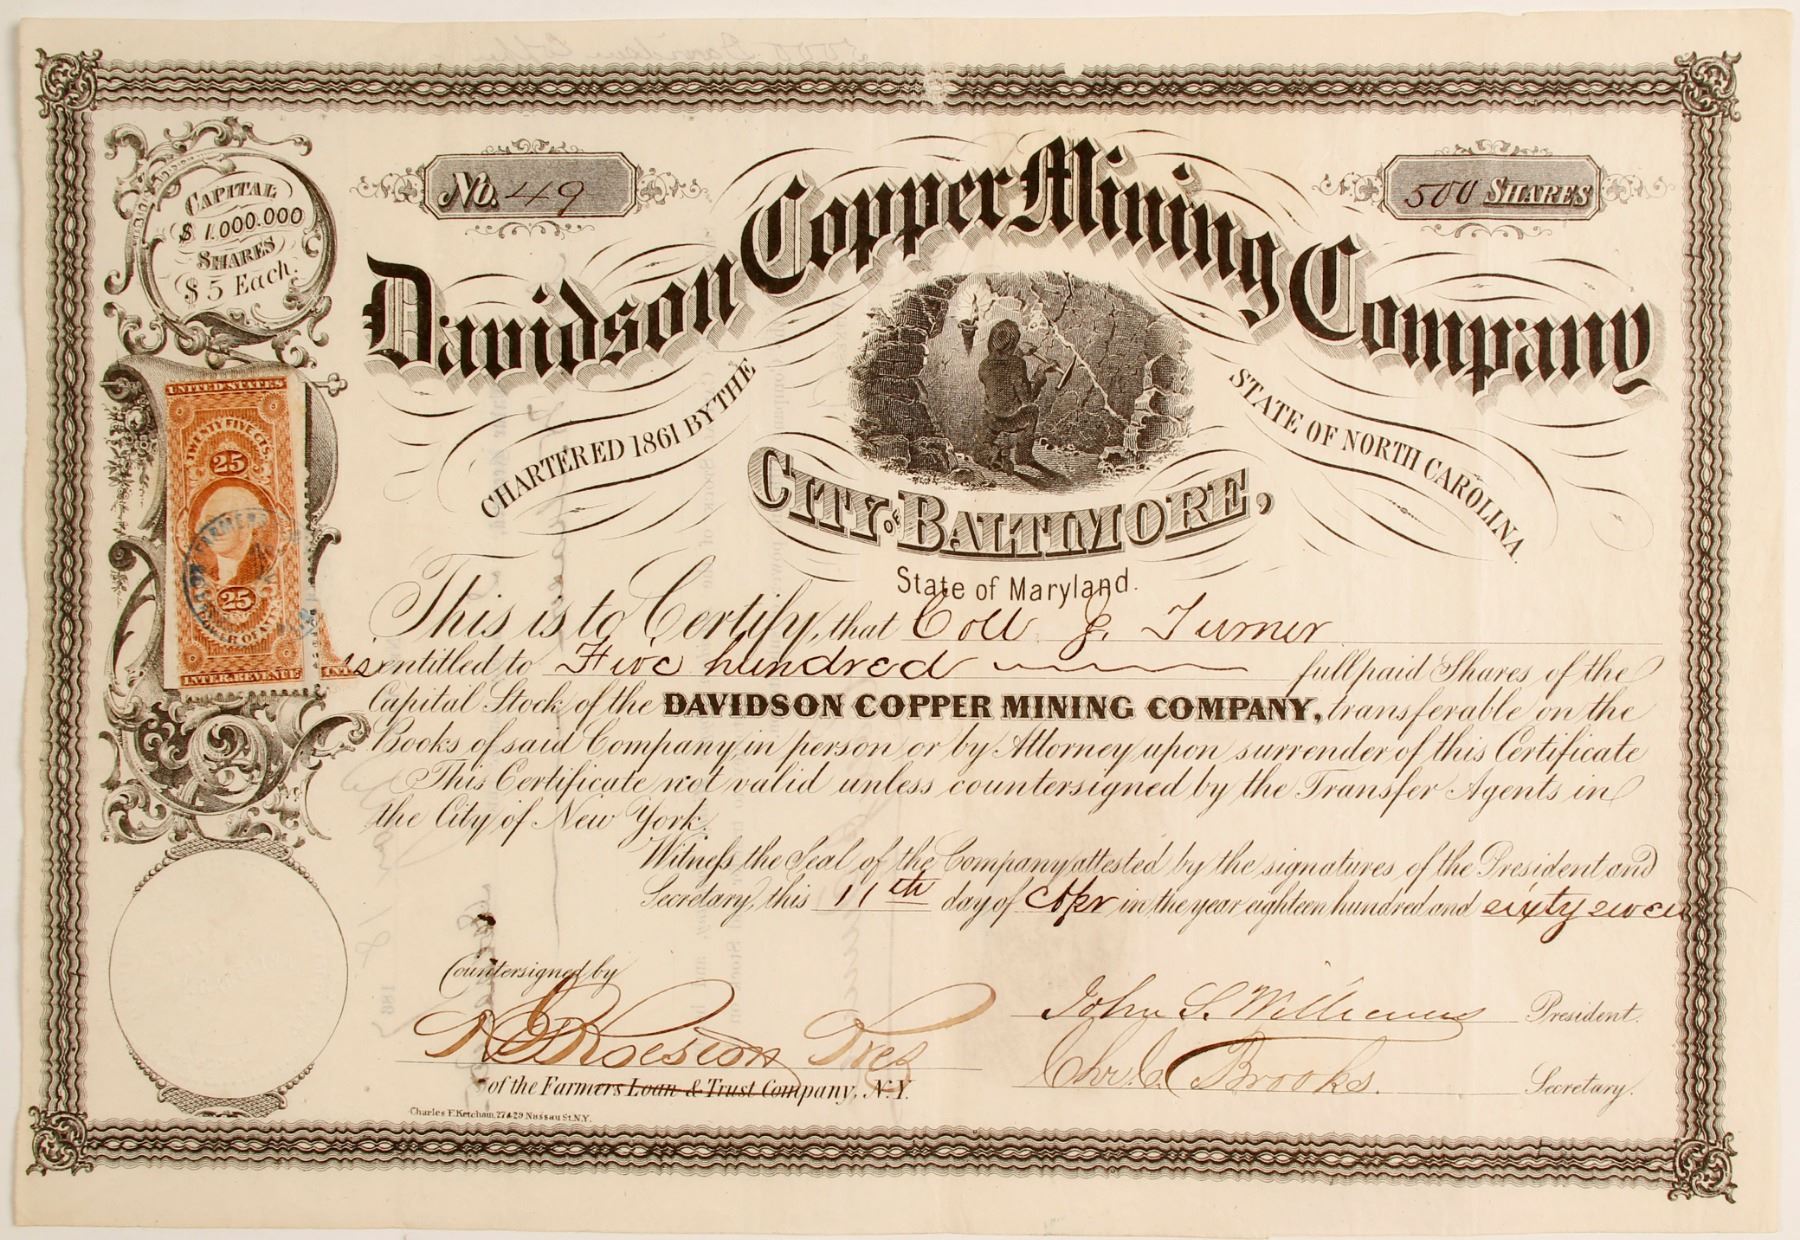 CAPITAL
$ 1.000.000
SHARES
$ 5 Each.
No. 49
500 SHARES
Davidson Copper Mining Company
CHARTERED 1861 BY THE STATE OF NORTH CAROLINA
CITY OF BALTIMORE,
State of Maryland.
UNITED STATES
TWENTY FIVE CTS.
25
25
INTER. REVENUE
This is to Certify, that Coll J. Turner
is entitled to Five hundred full paid Shares of the
Capital Stock of the DAVIDSON COPPER MINING COMPANY, transferable on the
Books of said Company, in person or by Attorney upon surrender of this Certificate
This Certificate not valid unless countersigned by the Transfer Agents in
the City of New York.
Witness the Seal of the Company attested by the signatures of the President and
Secretary, this 11th day of Apr in the year eighteen hundred and sixty seven
Countersigned by
Pres
John S. Williams President.
of the Farmers Loan & Trust Company, N.Y.
Chr. C. Brooks. Secretary.
Charles F. Ketcham, 27 & 29 Nassau St. N.Y.